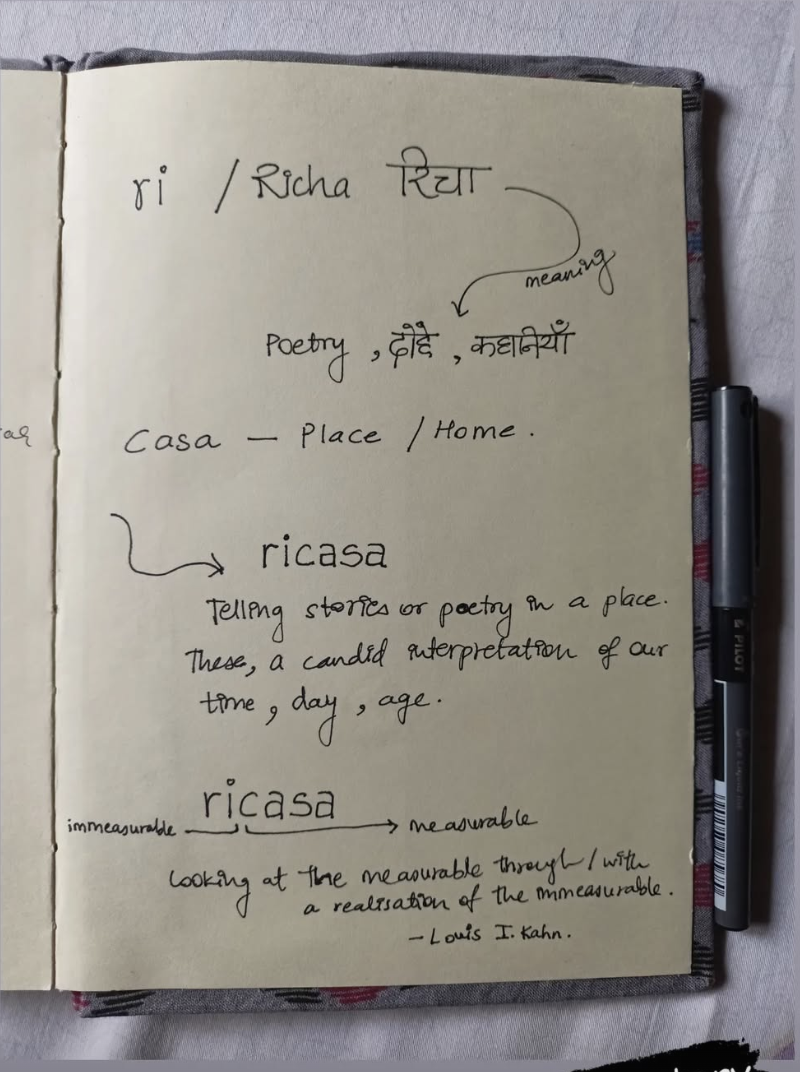 ri / Richa रिचा
meaning
Poetry , दोहे , कहानियाँ
Casa — Place / Home .
ricasa
Telling stories or poetry in a place.
These, a candid interpretation of our
time , day , age .
ricasa
immeasurable measurable
Looking at the measurable through / with
a realisation of the immeasurable .
– Louis I. Kahn .
PILOT